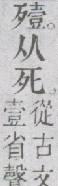 殪。从死。
從古文
壹省聲